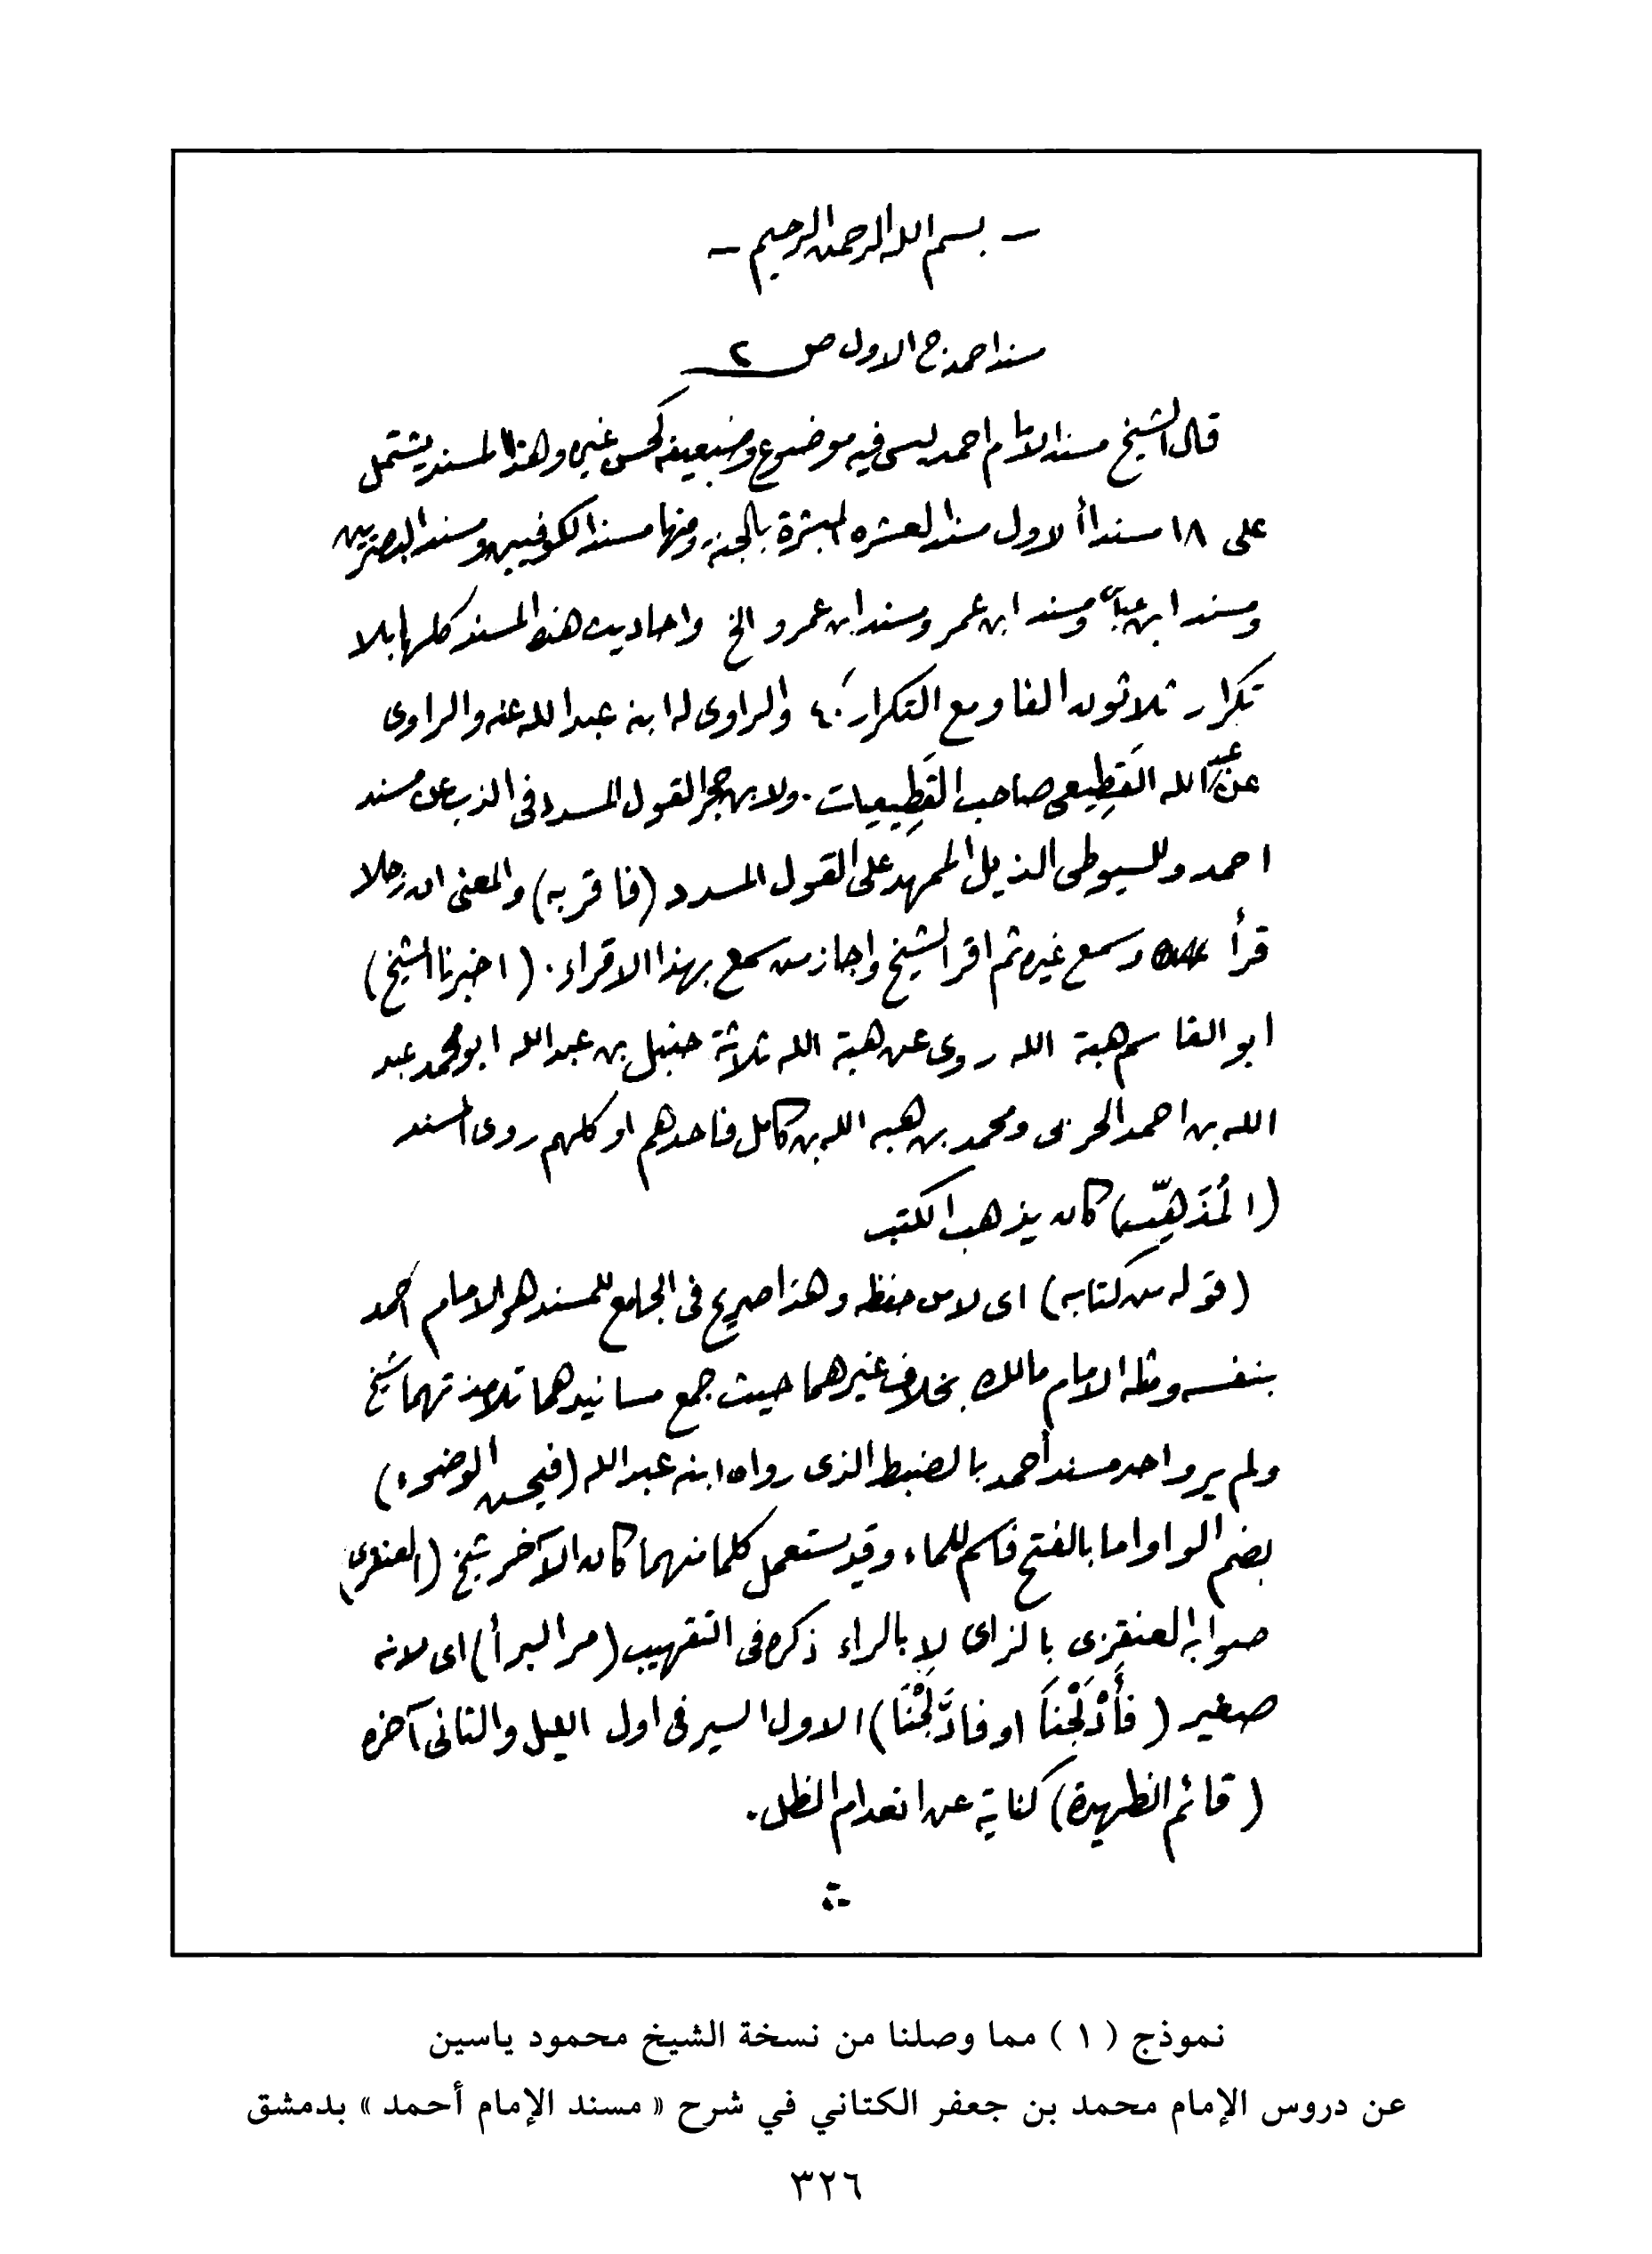 ـ بسم الله الرحمن الرحيم ـ
مسند احمد ج الاول ص ٢
قال الشيخ مسند الامام احمد ليس فيه موضوع وضعيفه كحسن غيره وهذا المسند يشتمل
على ١٨ مسنداً الاول مسند العشره المبشرة بالجنة ومنها مسند الكوفيين ومسند البصريين
ومسند ابن عباس ومسند ابن عمر ومسند ابن عمرو الخ واحاديث هذا المسند كلها بلا
تكرار ثلاثون الفا ومع التكرار ٤٠ والراوى له ابنه عبد الله عنه والراوى
عن عبد الله القَطِيعى صاحب القَطِيعيات . ولابن حجر القول المسدد فى الذب عن مسند
احمد وللسيوطى الذيل الممهد على القول المسدد (فاقر به) والمعنى ان رجلا
قرأ وسمع غيره ثم اقر الشيخ واجاز من سمع بهذا الاقراء . (اخبرنا الشيخ)
ابو القاسم هبة الله روى عن هبة الله ثلاثة حنبل بن عبد الله ابو محمد عبد
الله بن احمد الحربى ومحمد بن هبه الله بن كامل فاحدهم او كلهم روى المسند
(المُذَهِّب) كان يذهب الكتب
(قوله من كتابه) اى لا من حفظه وهذا صريح فى الجامع للمسند هو الامام احمد
بنفسه ومثله الامام مالك بخلاف غيرهما حيث جمع مسانيدهما تلامذتهما شيخ
ولم يرو احد مسند أحمد بالضبط الذى رواه ابنه عبد الله (فيحسن الوضوء)
بضم الواو اما بالفتح فاسم للماء وقد يستعمل كلا منهما كان الآخر شيخ (العنقرى)
صوابه العنقزى بالزاى لا بالراء ذكره فى التقريب (مر البرأ) اى لانه
صغير (فَأَدْلَجْنَا او فادَّلَجْنَا) الاول السير فى اول الليل والثانى آخره
(قائم الظهيرة) كناية عن انعدام الظل .
نموذج ( ١ ) مما وصلنا من نسخة الشيخ محمود ياسين
عن دروس الإمام محمد بن جعفر الكتاني في شرح « مسند الإمام أحمد » بدمشق
٣٢٦